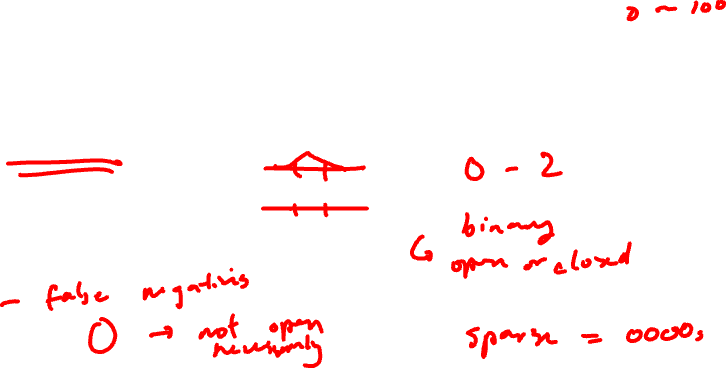 0 ~ 100
0 - 2
binary
↳ open or closed
- false negatives
0 → not open
necessarily
sparse = 0000s